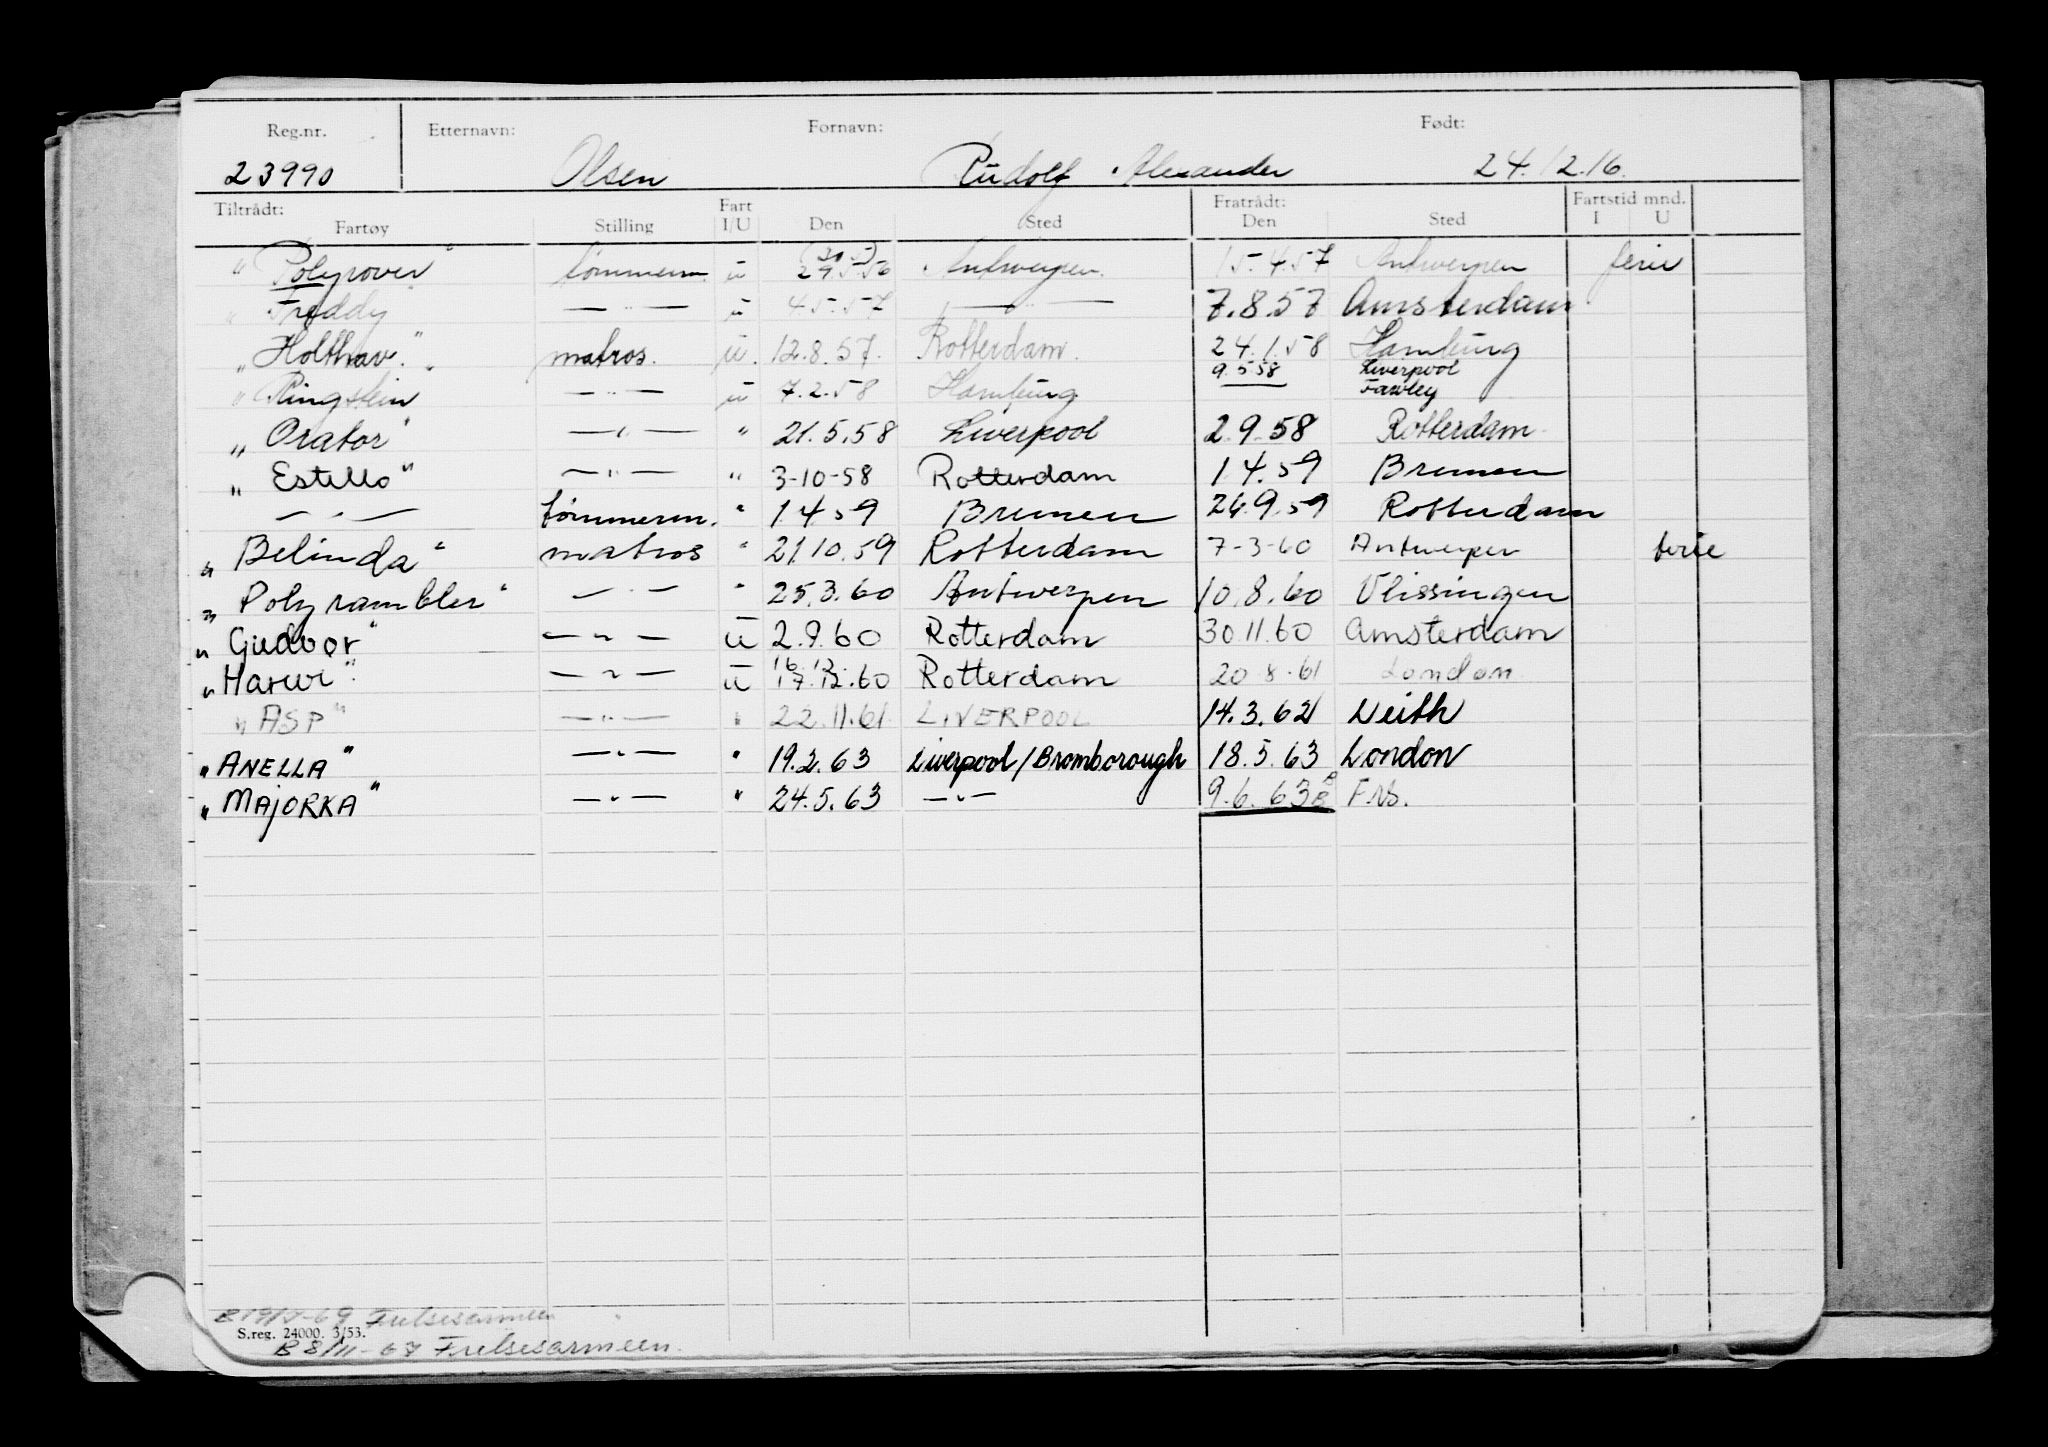 Reg.nr. Etternavn: Fornavn: Født:
23990 Olsen Rudolf Alexander 24.12.16.
Tiltrådt: Fart Fratrådt: Fartstid mnd.
Fartøy Stilling I/U Den Sted Den Sted I U
(30 5)
"Polyrover" tømmerm. u 29.5.56 Antwerpen. 15.4.57 Antwerpen ferie
"Freddy" — " — u 4.5.57 — " — 7.8.57 Amsterdam
"Holthav." matros. u. 12.8.57. Rotterdam. 24.1.58 Hamburg
9.5.58 Liverpool
"Ringstein — " — u 7.2.58 Hamburg Fawley
"Orator" — " — " 21.5.58 Liverpool 2.9.58 Rotterdam
"Estello" — " — " 3-10-58 Rotterdam 1.4.59 Bremen
— " — tømmerm. " 1.4.59 Bremen 26.9.59 Rotterdam
"Belinda" matros " 21.10.59 Rotterdam 7-3-60 Antwerpen ferie
"Polyrambler" — " — " 25.3.60 Antwerpen 10.8.60 Vlissingen
"Gudvor" — " — u 2.9.60 Rotterdam 30.11.60 Amsterdam
16.12.
"Harwi" — " — u 17.12.60 Rotterdam 20.8.61 London
"ASP" — " — " 22.11.61 LIVERPOOL 14.3.62 Leith
"ANELLA" — " — " 19.2.63 Liverpool/Bromborough 18.5.63 London
"MAJORKA" — " — " 24.5.63 — " — 9.6.63 F.N.
B 19/5-69 Frelsesarmeen
S.reg. 24000. 3/53.
B 8/11-67 Frelsesarmeen.